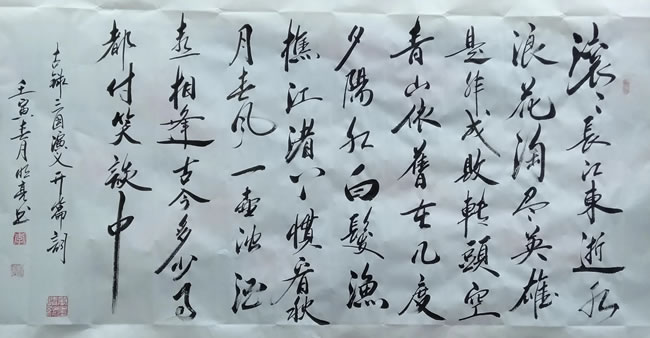 滚〻長江東逝水
浪花淘尽英雄
是非成敗轉頭空
青山依舊在几度
夕陽红白髮漁
樵江渚上慣看秋
月春风一壶浊酒
喜相逢古今多少事
都付笑談中
去錄三国演义开篇詞
壬寅春月明亮书